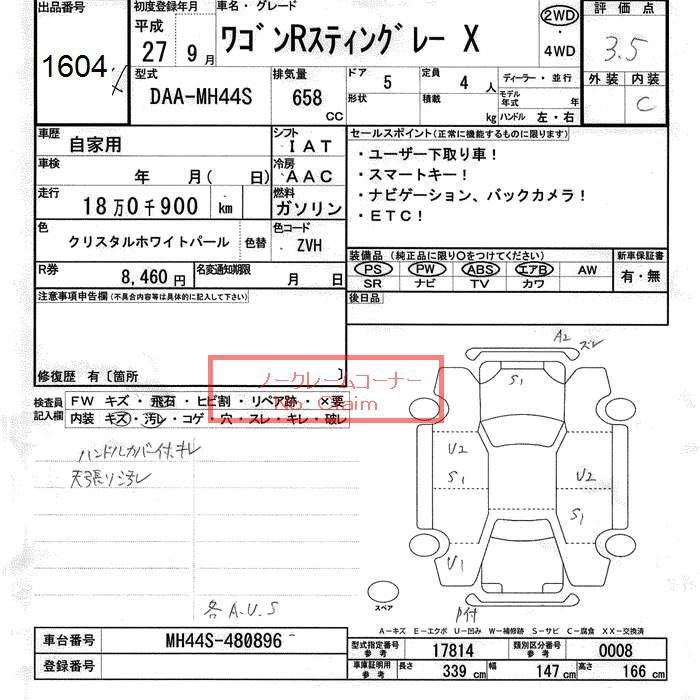 出品番号
1604
初度登録年月
平成
27 9月
車名・グレード
ワゴンRスティングレー X
2WD
・
4WD
評価点
3.5
外装 内装
C
型式
DAA-MH44S
排気量
658
CC
ドア
5
形状
定員
4人
積載
kg
ディーラー・並行
モデル年式 年
ハンドル 左・右
車歴
自家用
シフト
IAT
車検
年 月( 日)
冷房
AAC
走行
18万0千900 km
燃料
ガソリン
色
クリスタルホワイトパール
色替
色コード
ZVH
R券
8,460円
名変通知期限
月 日
セールスポイント(正常に機能するものに限ります)
・ユーザー下取り車!
・スマートキー!
・ナビゲーション、バックカメラ!
・ETC!
装備品(純正品に限り○をつけてください)
PS PW ABS エアB AW
SR ナビ TV カワ
新車保証書
有・無
後日品
注意事項申告欄(不具合内容等は具体的に記入して下さい)
修復歴 有〔箇所 〕
ノークレームコーナー
No Claim
検査員
記入欄
FW キズ・飛石・ヒビ割・リペア跡・×要
内装 キズ・汚レ・コゲ・穴・スレ・キレ・破レ
ハンドルカバー付、キレ
天張りヨゴレ
各A.U.S
A2
ズレ
S1
U2
S1
U2
S1
U1
P付
スペア
A-キズ E-エクボ U-凹み W-補修跡 S-サビ C-腐食 XX-交換済
車台番号
MH44S-480896
登録番号
型式指定番号
参考
17814
類別区分番号
参考
0008
車庫証明用
参考
長さ
339 cm
幅
147 cm
高さ
166 cm